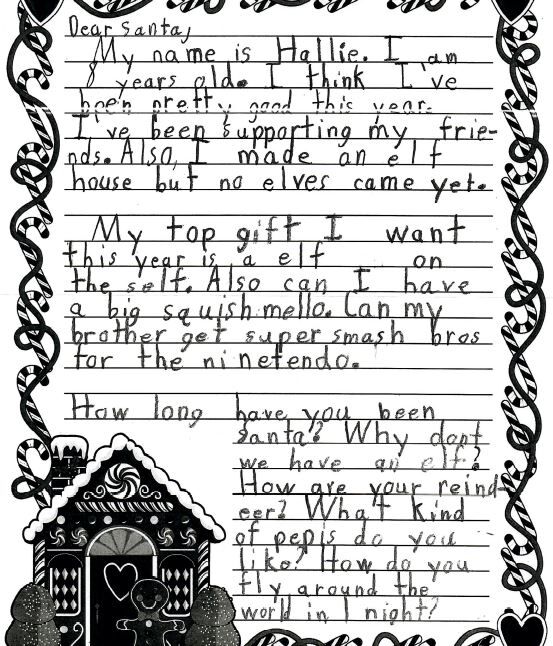 Dear Santa,
My name is Hallie. I am
8 years old. I think I've
been pretty good this year.
I've been supporting my frie-
nds. Also, I made an elf
house but no elves came yet.
My top gift I want
this year is a elf on
the self. Also can I have
a big squishmello. Can my
brother get super smash bros
for the ninetendo.
How long have you been
santa? Why dont
we have an elf?
How are your reind-
eer? What kind
of pepis do you
like? How do you
fly around the
world in 1 night?